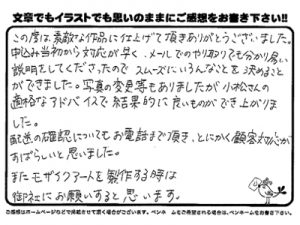 文章でもイラストでも思いのままにご感想をお書き下さい!!
この度は、素敵な作品に仕上げて頂きありがとうございました。
申込み当初から対応が早く、メールでのやり取りでも分かり易い
説明をしてくださったので スムーズにいろんなことを決めること
ができました。写真の変更等もありましたが 小松さんの
適格なアドバイスで結果的に良いものができ上がりま
した。
配送の確認についてもお電話まで頂き、とにかく顧客対応が
すばらしいと思いました。
またモザイクアートを製作する時は
御社にお願いすると思います。
ご感想はホームページなどで掲載させて頂く場合がございます。ペンネームをご希望される場合は、ペンネームをお書き下さい。